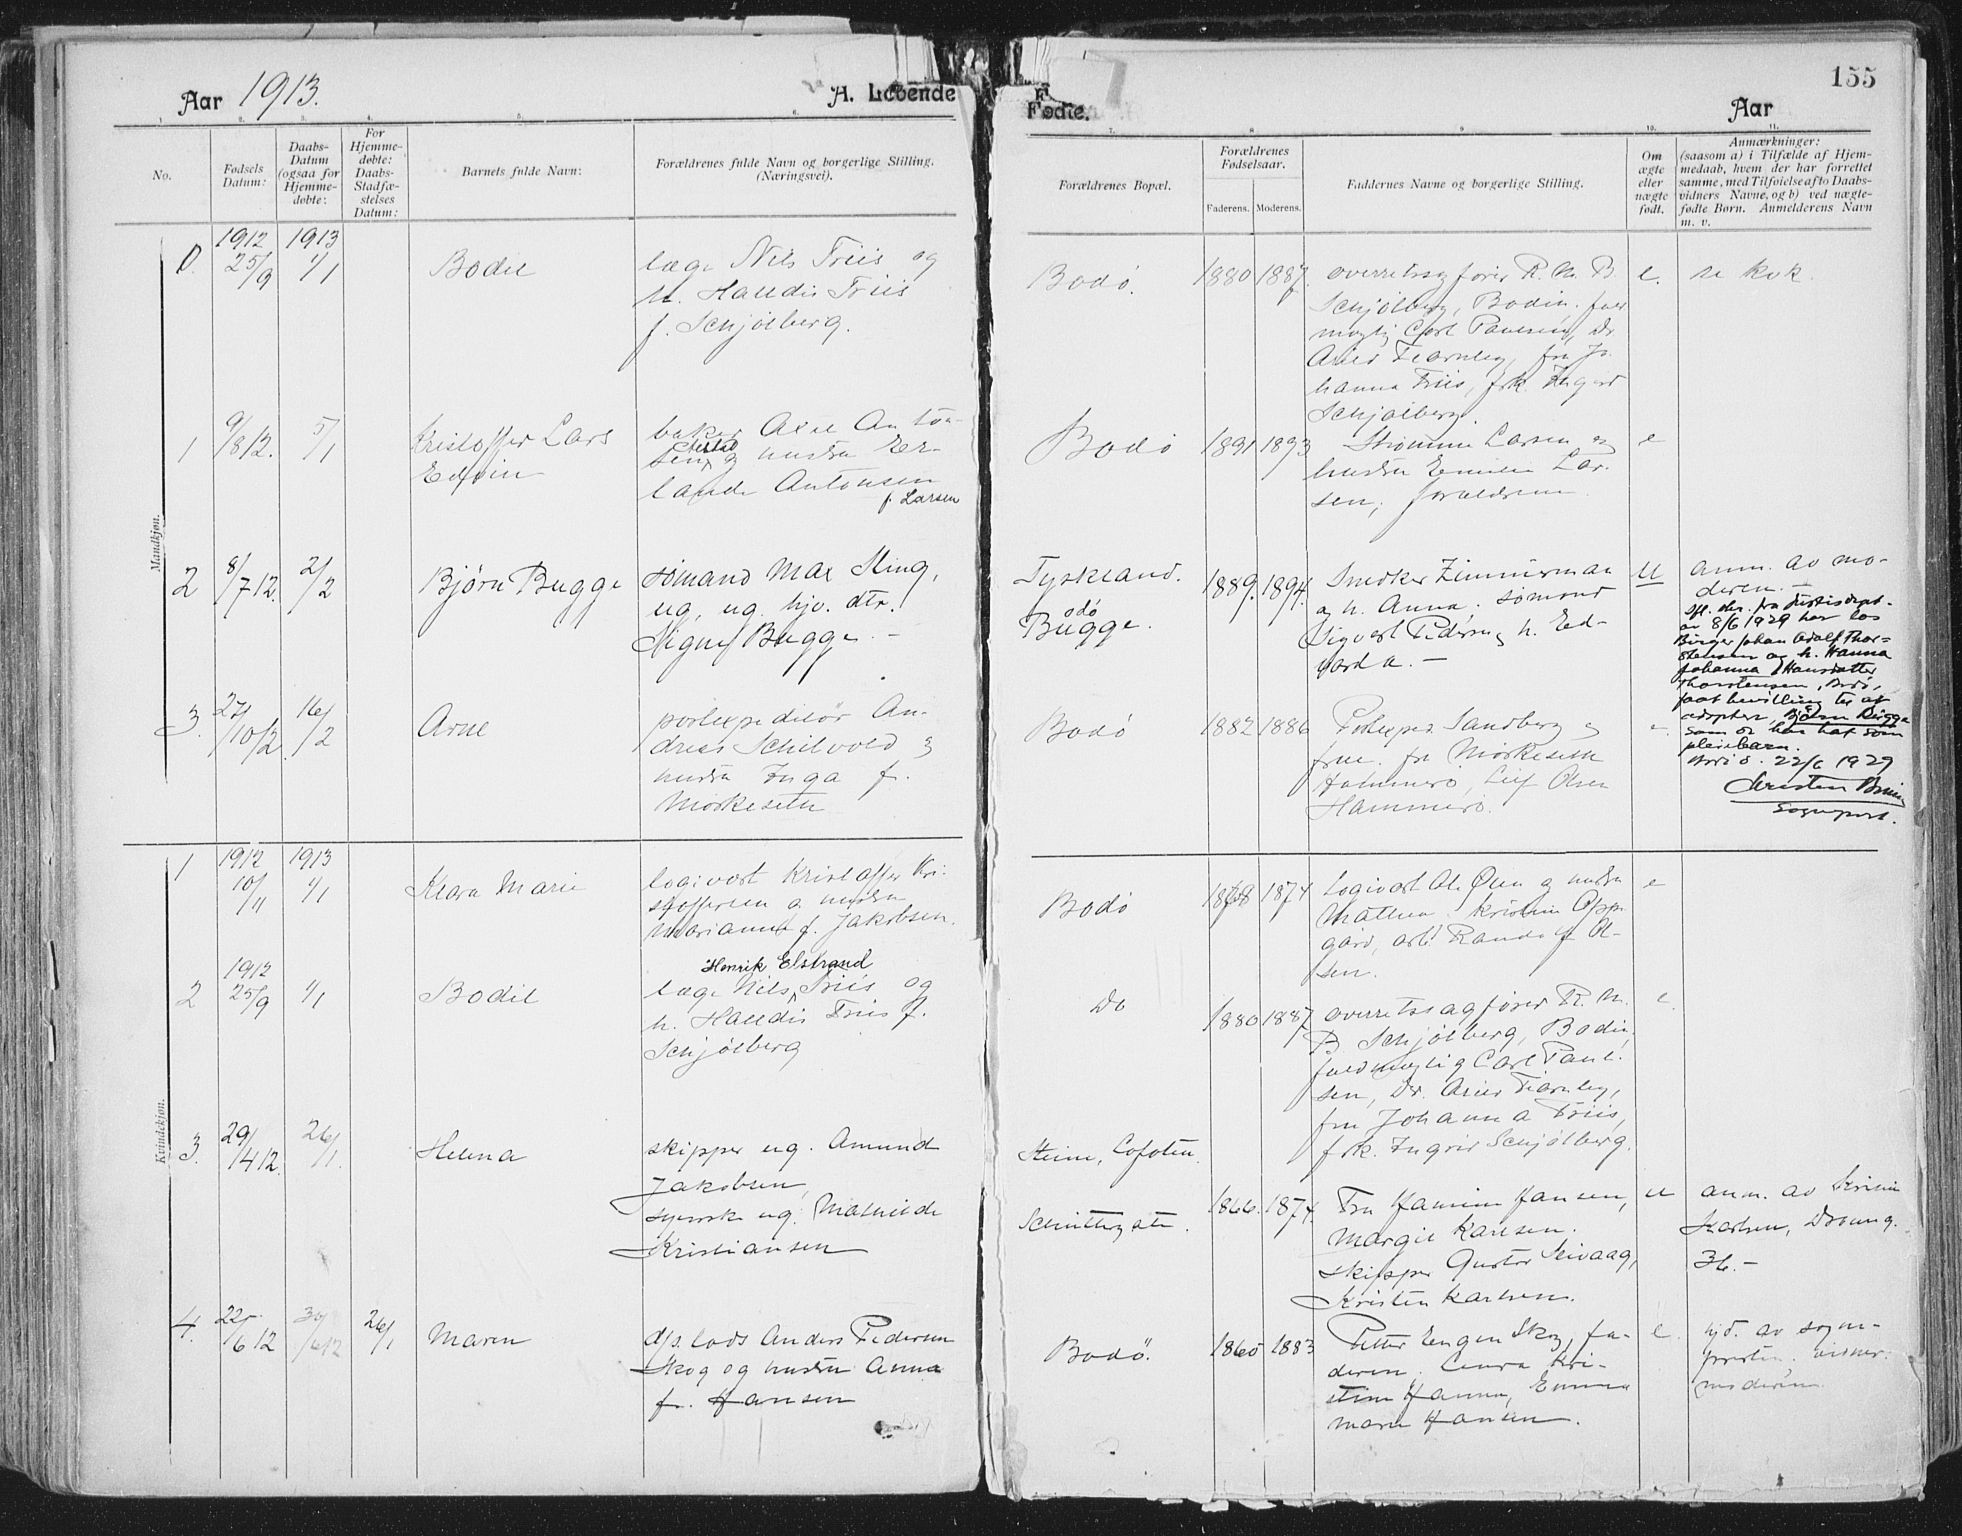 155
Aar 1913.
A. Levende
Fødte.
Aar
1.
2.
3.
4.
5.
6.
7.
8.
9.
10.
11.
No.
Fødsels
Datum:
Daabs-
Datum
(ogsaa for
Hjemme-
døbte:
For
Hjemme-
døbte:
Daabs-
Stadfæ-
stelses
Datum:
Barnets fulde Navn:
Forældrenes fulde Navn og borgerlige Stilling.
(Næringsvei).
Forældrenes Bopæl.
Forældrenes
Fødselsaar.
Faderens.
Moderens.
Faddernes Navne og borgerlige Stilling.
Om
ægte
eller
uægte
født.
Anmærkninger:
(saasom a) i Tilfælde af Hjem-
medaab, hvem der har forrettet
samme, med Tilføielse af to Daabs-
vidners Navne, og b) ved uægte-
fødte Børn. Anmelderens Navn
m. v.
Mandkjøn.
0.
1912
25/9
1913
1/1
Bodil
læge Nils Friis og
h. Halldis Friis
f. Schjølberg.
Bodø.
1880
1887.
overretssagfører R. M. B.
Schjølberg, Bodin. fuld
mægtig Carl Paulsen, Dr
Fearnley, fru Jo
hanna Friis, frk. Ingrid
Schjølberg.
e.
se kvk.
1
9/8 12.
5/1
Kristoffer Lars
Edvin
baker Axel Anton
sen og hustru Er-
lande Antonsen
f. Larsen
Bodø
1891
1893
Larsen og
hustru Emilie Lar-
sen, forældrene
e
2
8/7 12.
2/2
Bjørn Bugge
sømand Max King,
ug, ug. hjv. dtr.
Signe Bugge. -
Tyskland.
Bodø
Bugge.
1889.
1894.
Smøker Zimmerman
og h. Anna. sømand
Sigvart Pedersen, h. Ed-
varda. -
U
anm. av mo-
deren.
ifl. skr. fra Justisdept.
av 8/6 1929 har los
Birger Johan Adolf Thor-
stensen og h. Hanna
Johanna Hansdatter
Thorstensen, Bodø,
faat bevilling til at
adoptere Bjørn Bugge
som de har hat som
pleiebarn.
Bodø 22/6 1929
Sognepr.
3.
27/10 12.
16/2
Arne
postexpeditør An-
dreas Schilvold og
hustru Inga f.
Mørkeseth
Bodø
1882
1886
Postexped. Sandberg og
frue. fr. Mørkeseth
Hammerø, Leif Olsen
Hammerø.
e.
Kvindekjøn.
1
1912
10/11
1913
1/1
Klara Marie
logivert Kristoffer Kri-
stoffersen og hustru
Marianne f. Jakobsen.
Bodø
1868
1874
Logivert Ole Øien og hustru
Mathea. Kristine Opp-
gård, arb. Randolf Ol-
sen.
e
2
1912
25/9
1/1
Bodil
Henrik Elstrand
læge Nils Friis og
h. Halldis Friis f.
Schjølberg
Do
1880
1887
overretssagfører R. M.
B. Schjølberg, Bodin,
fuldmægtig Carl Paul-
sen, Dr. Fearnley,
fru Johanna Friis,
frk. Ingrid Schjølberg.
e
3.
29/4 12.
26/1.
Helena
skipper ug. Amund
Jakobsen,
tjenest. ug. Mathilde
Kristiansen
Steine, Lofoten.
Schultzgate.
1866.
1874.
Fru Hansen,
Margit Karlsen.
skipper Gustav Seivaag,
Kristen Karlsen.
u
anm. av Kristin
Karlsen, Dronng.
36.-
4.
22/6 12
30/6 12
26/1
Maren
d/s. lods Anders Pedersen
Skog og hustru Anna
f. Hansen
Bodø.
1865
1883
Petter Engen Skog, fa-
deren. Laura Kri-
stine Hansen, Emma
Marie Hansen.
e.
hjd. av sogne-
presten. vidner.
moderen.